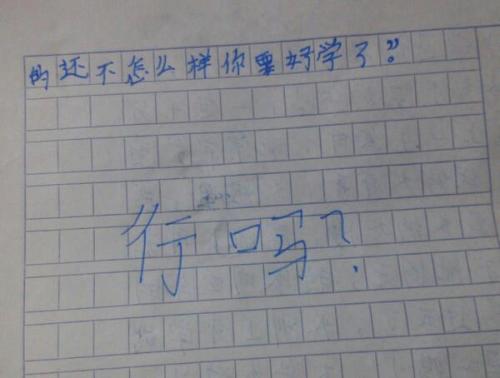 的还不怎么样你要好学了?”
行吗?